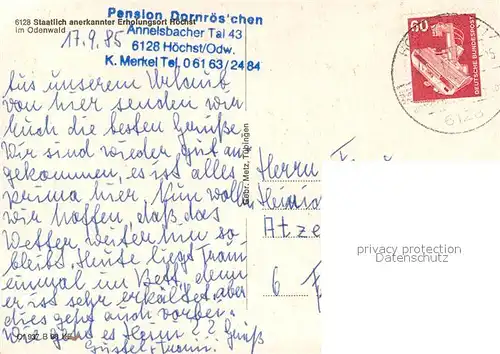 6128 Staatlich anerkannter Erholungsort Höchst
im Odenwald
Pension Dornrös'chen
Annelsbacher Tal 43
6128 Höchst/Odw.
K. Merkel Tel. 0 61 63/24 84
17.9.85
60
DEUTSCHE BUNDESPOST
6128
Aus unserem Urlaub
von hier senden wir
Euch die besten Grüße
Wir sind wieder gut an
gekommen, es ist alles
prima hier, Nun wollen
wir hoffen, daß das
Wetter weiterhin so
bleibt. Heute liegt Trau
einmal im Bett, denn
er ist sehr erkältet, aber
dies geht auch vorbei.
Wie geht es Heini ?? Gruß
Gebr. Metz, Tübingen
Herrn
Atze
6
privacy protection
Datenschutz